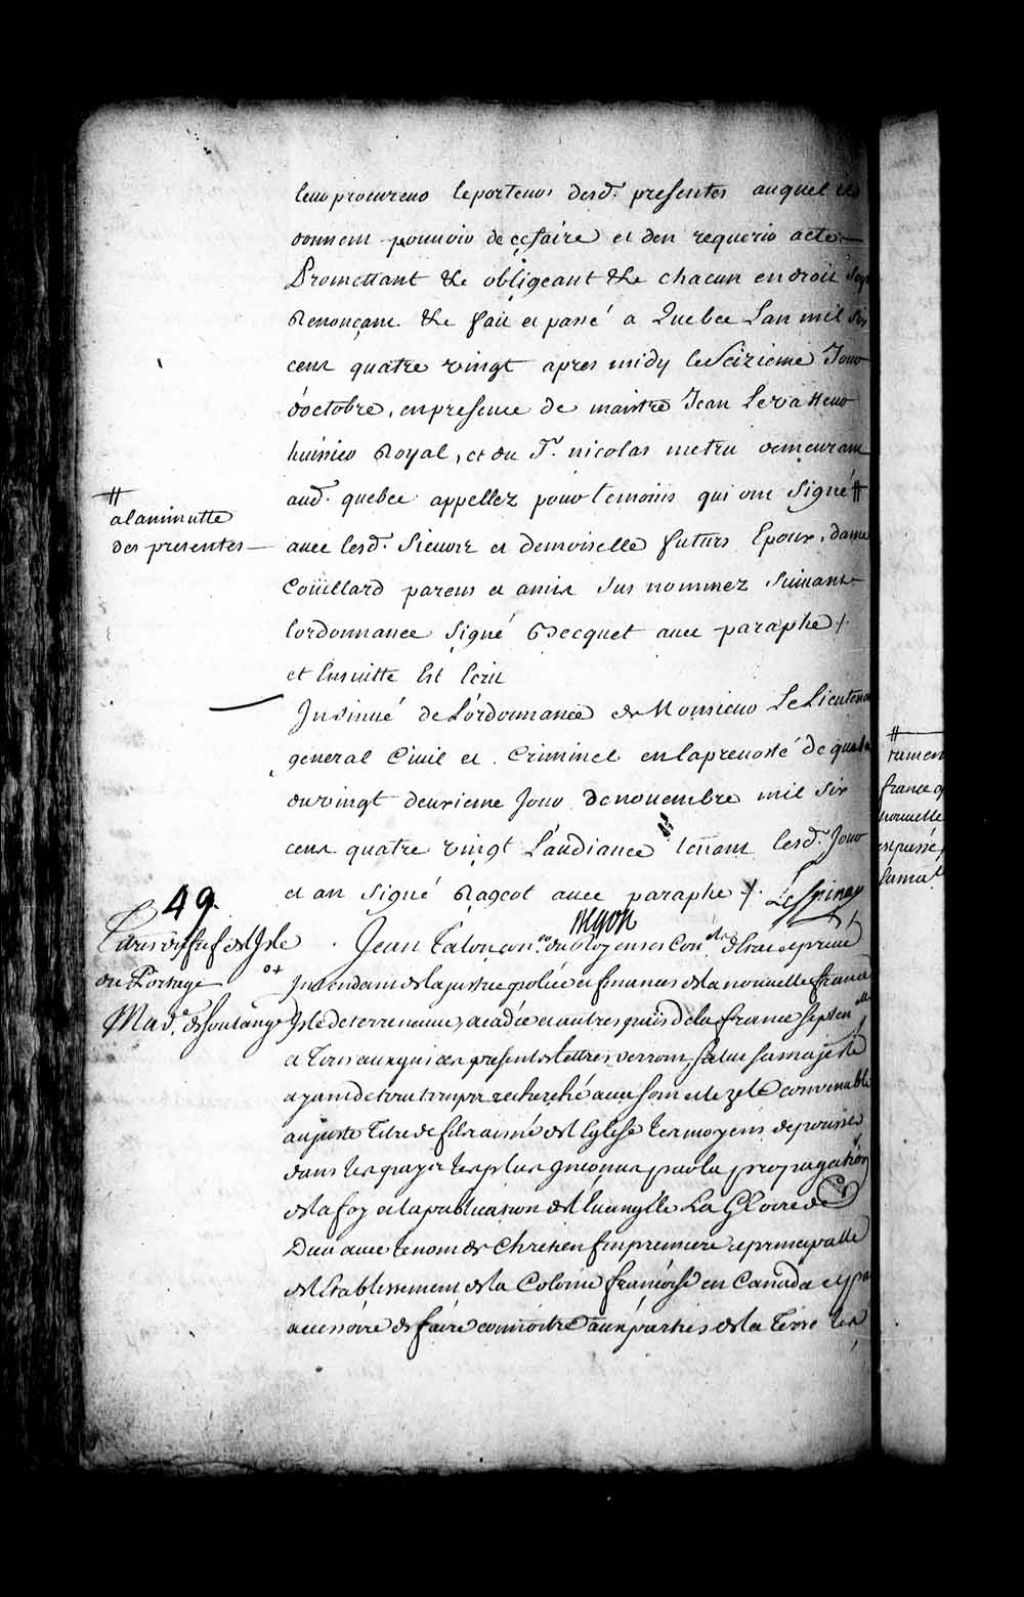 leur procureur le porteur desd. presentes auquel ils
donnent pouvoir de ce faire et den requerir acte
Promettant &c obligeant &c chacun en droit soy
Renonçant &c fait et passé a Quebec Lan mil six
cent quatre vingt apres midy le Seizieme Jour
doctobre, en presence de maistre Jean Levasseur
huissier Royal, et du Sr. nicolas metru demeurant
aud. quebec appellez pour temoins qui ont Signé #
#
a la minutte
des presentes
avec lesd. Sieurs et demoiselle futurs Epoux, dame
Coüillard parens et amis sus nommez suivant
lordonnance signé Becquet avec paraphe /.
et Ensuitte Est Ecrit
Insinué de Lordonnance de Monsieur Le Lieutenant
general Civil et Criminel en la prevosté de quebec
du vingt deuxieme Jour de novembre mil six
cent quatre vingt Laudiance tenant lesd. Jour
et an Signé Rageot avec paraphe /. LeSpinay
49.
Begon
Titres du fief de L'Isle
du Portage
Mad.e de Soulange
Jean Talon con.er du Roy en ses Con.els d'Etat et privé
Intendant de la justice police et finances de la nouvelle france
Isle de terreneuve, acadie et autres païs de la france Septen.lle
a Tous ceux qui ces presentes lettres verront, Salut sa majesté
ayant de tout temps recherché avec soin et le zele convenable
au juste titre de fils aisné de l'Eglise les moyens de pousser
dans les pays les plus inconnus par la propagation
de la foy et la publication de l'Evangile La Gloire de
Dieu avec le nom de Chretien fin premiere et principalle
de l'Etablissement de la Colonie françoise en Canada et par
accessoire de faire connoitre aux parties de la Terre les
#
france
nouvelle